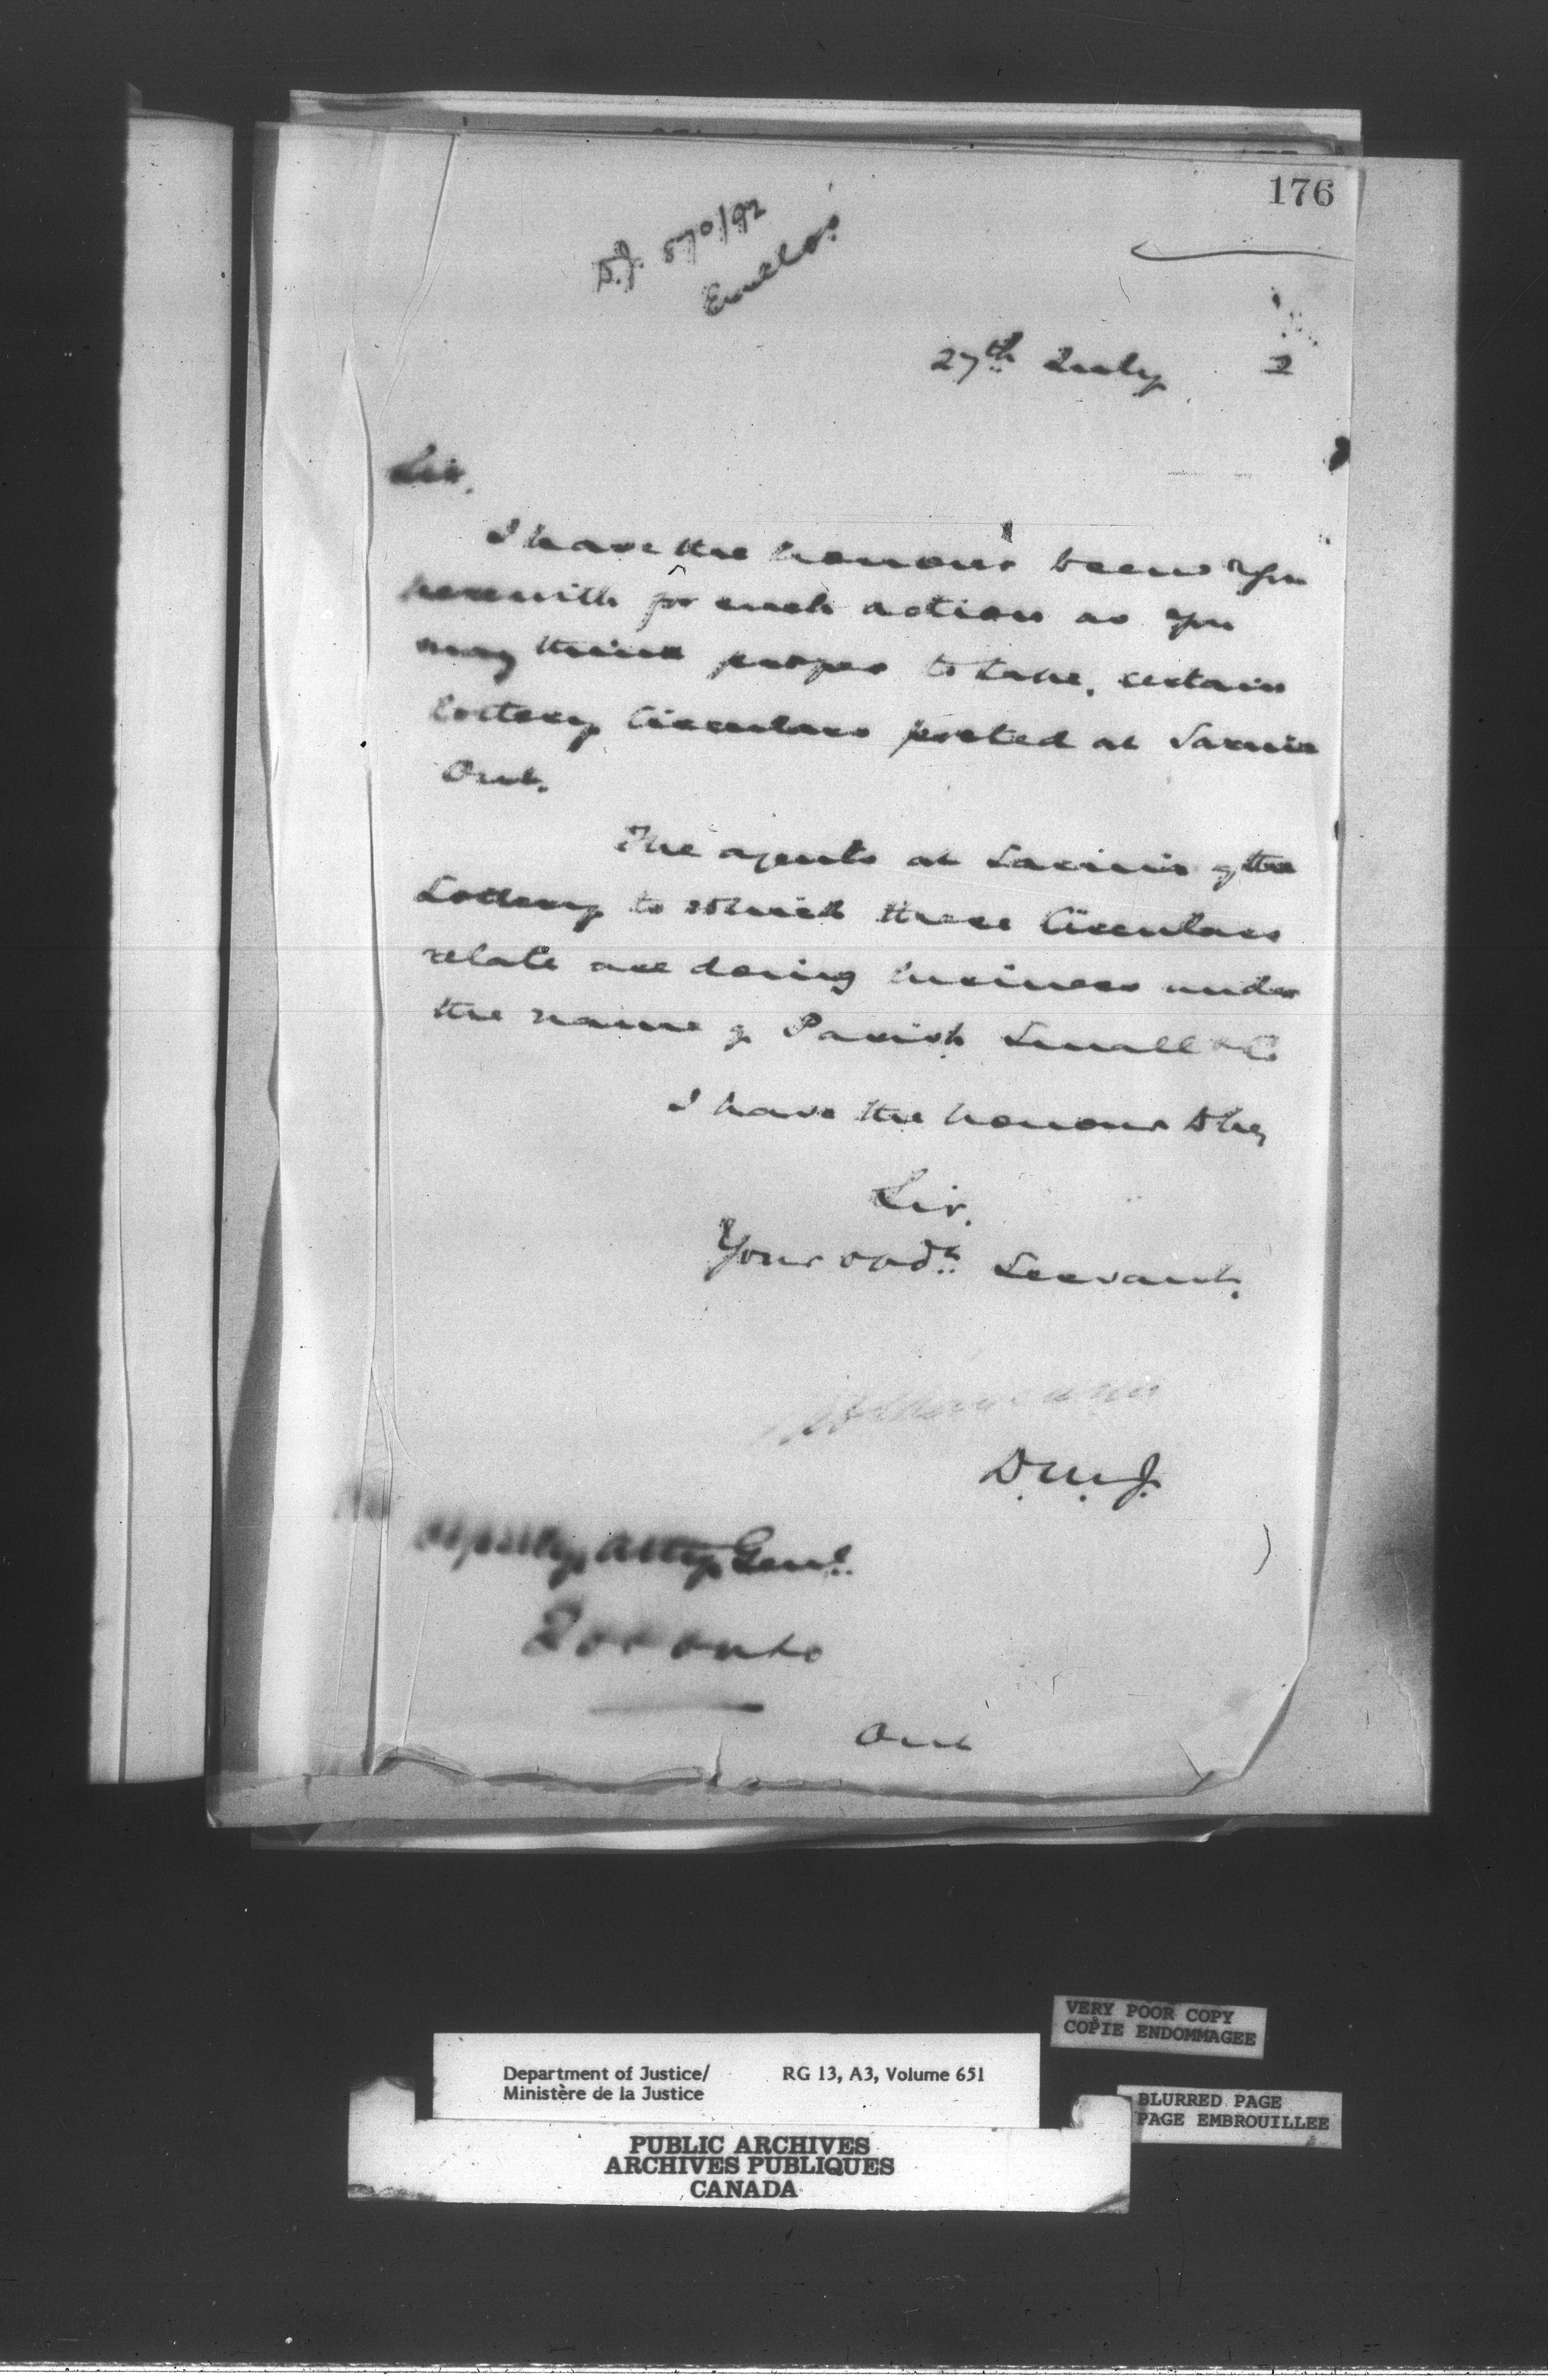 176
D.J. 870/92
Encl os.
27th July 2
Sir,
I have the honour to send you
herewith for such action as you
may think proper to take, certain
Lottery Circulars posted at Sarnia
Ont.
The agents at Sarnia of the
Lottery to which these Circulars
relate are doing business under
the name of Parish Small & Co.
I have the honour to be,
Sir,
Your obdt. Servant,
D.M.J.
The Deputy Atty Genl.
Toronto
Ont
VERY POOR COPY
COPIE ENDOMMAGEE
Department of Justice/ RG 13, A3, Volume 651
Ministère de la Justice
BLURRED PAGE
PAGE EMBROUILLEE
PUBLIC ARCHIVES
ARCHIVES PUBLIQUES
CANADA